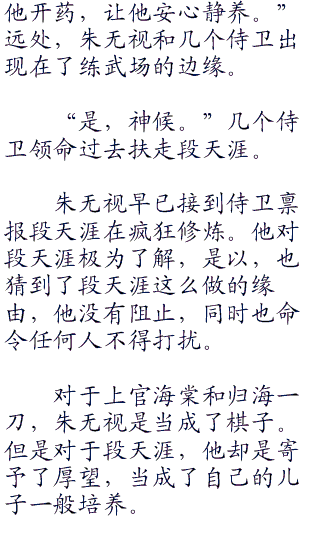 他开药，让他安心静养。”
远处，朱无视和几个侍卫出
现在了练武场的边缘。
“是，神候。”几个侍
卫领命过去扶走段天涯。
朱无视早已接到侍卫禀
报段天涯在疯狂修炼。他对
段天涯极为了解，是以，也
猜到了段天涯这么做的缘
由，他没有阻止，同时也命
令任何人不得打扰。
对于上官海棠和归海一
刀，朱无视是当成了棋子。
但是对于段天涯，他却是寄
予了厚望，当成了自己的儿
子一般培养。